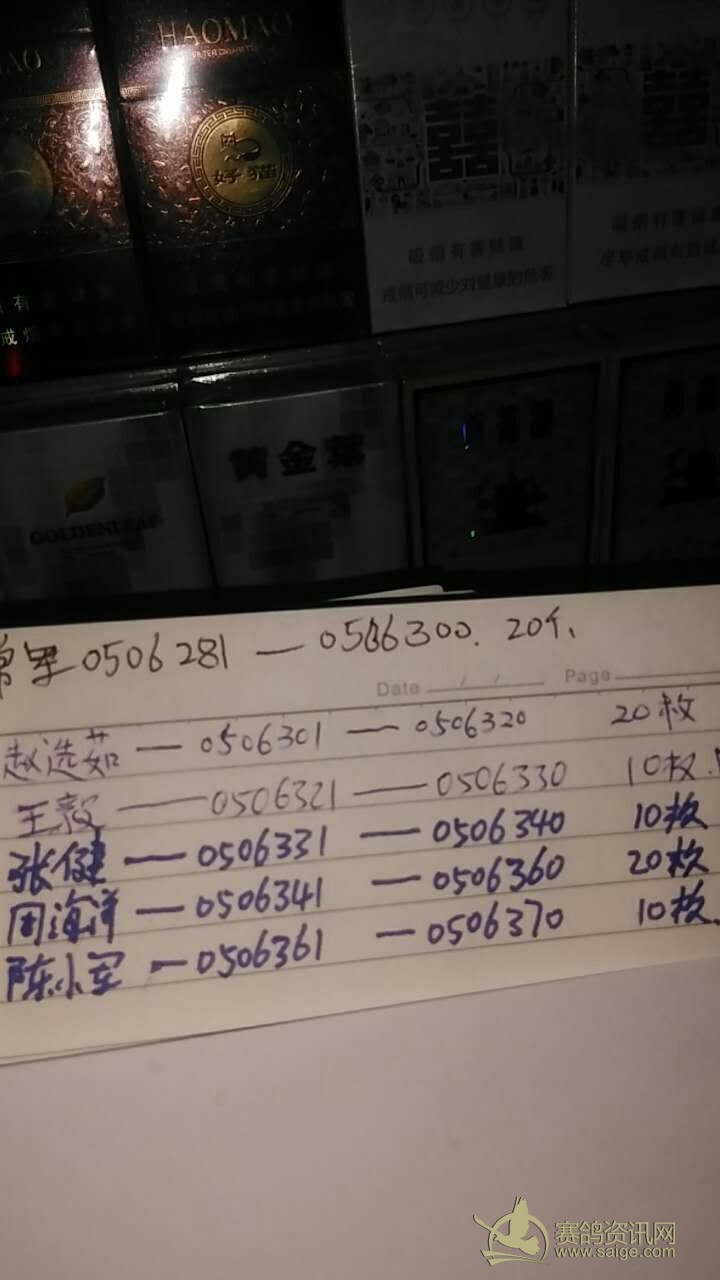 HAOMAO
好猫
囍
吸烟有害健康
戒烟可减少对健康的危害
吸烟有害健康
尽早戒烟有益健康
GOLDENLEAF
黄金葉
0506281 — 0506300. 20个.
Date / / Page
赵选茹 — 0506301 — 0506320 20枚
王毅 — 0506321 — 0506330 10枚.
张健 — 0506331 — 0506340 10枚
周海洋 — 0506341 — 0506360 20枚
陈小军 — 0506361 — 0506370 10枚.
赛鸽资讯网
www.saige.com